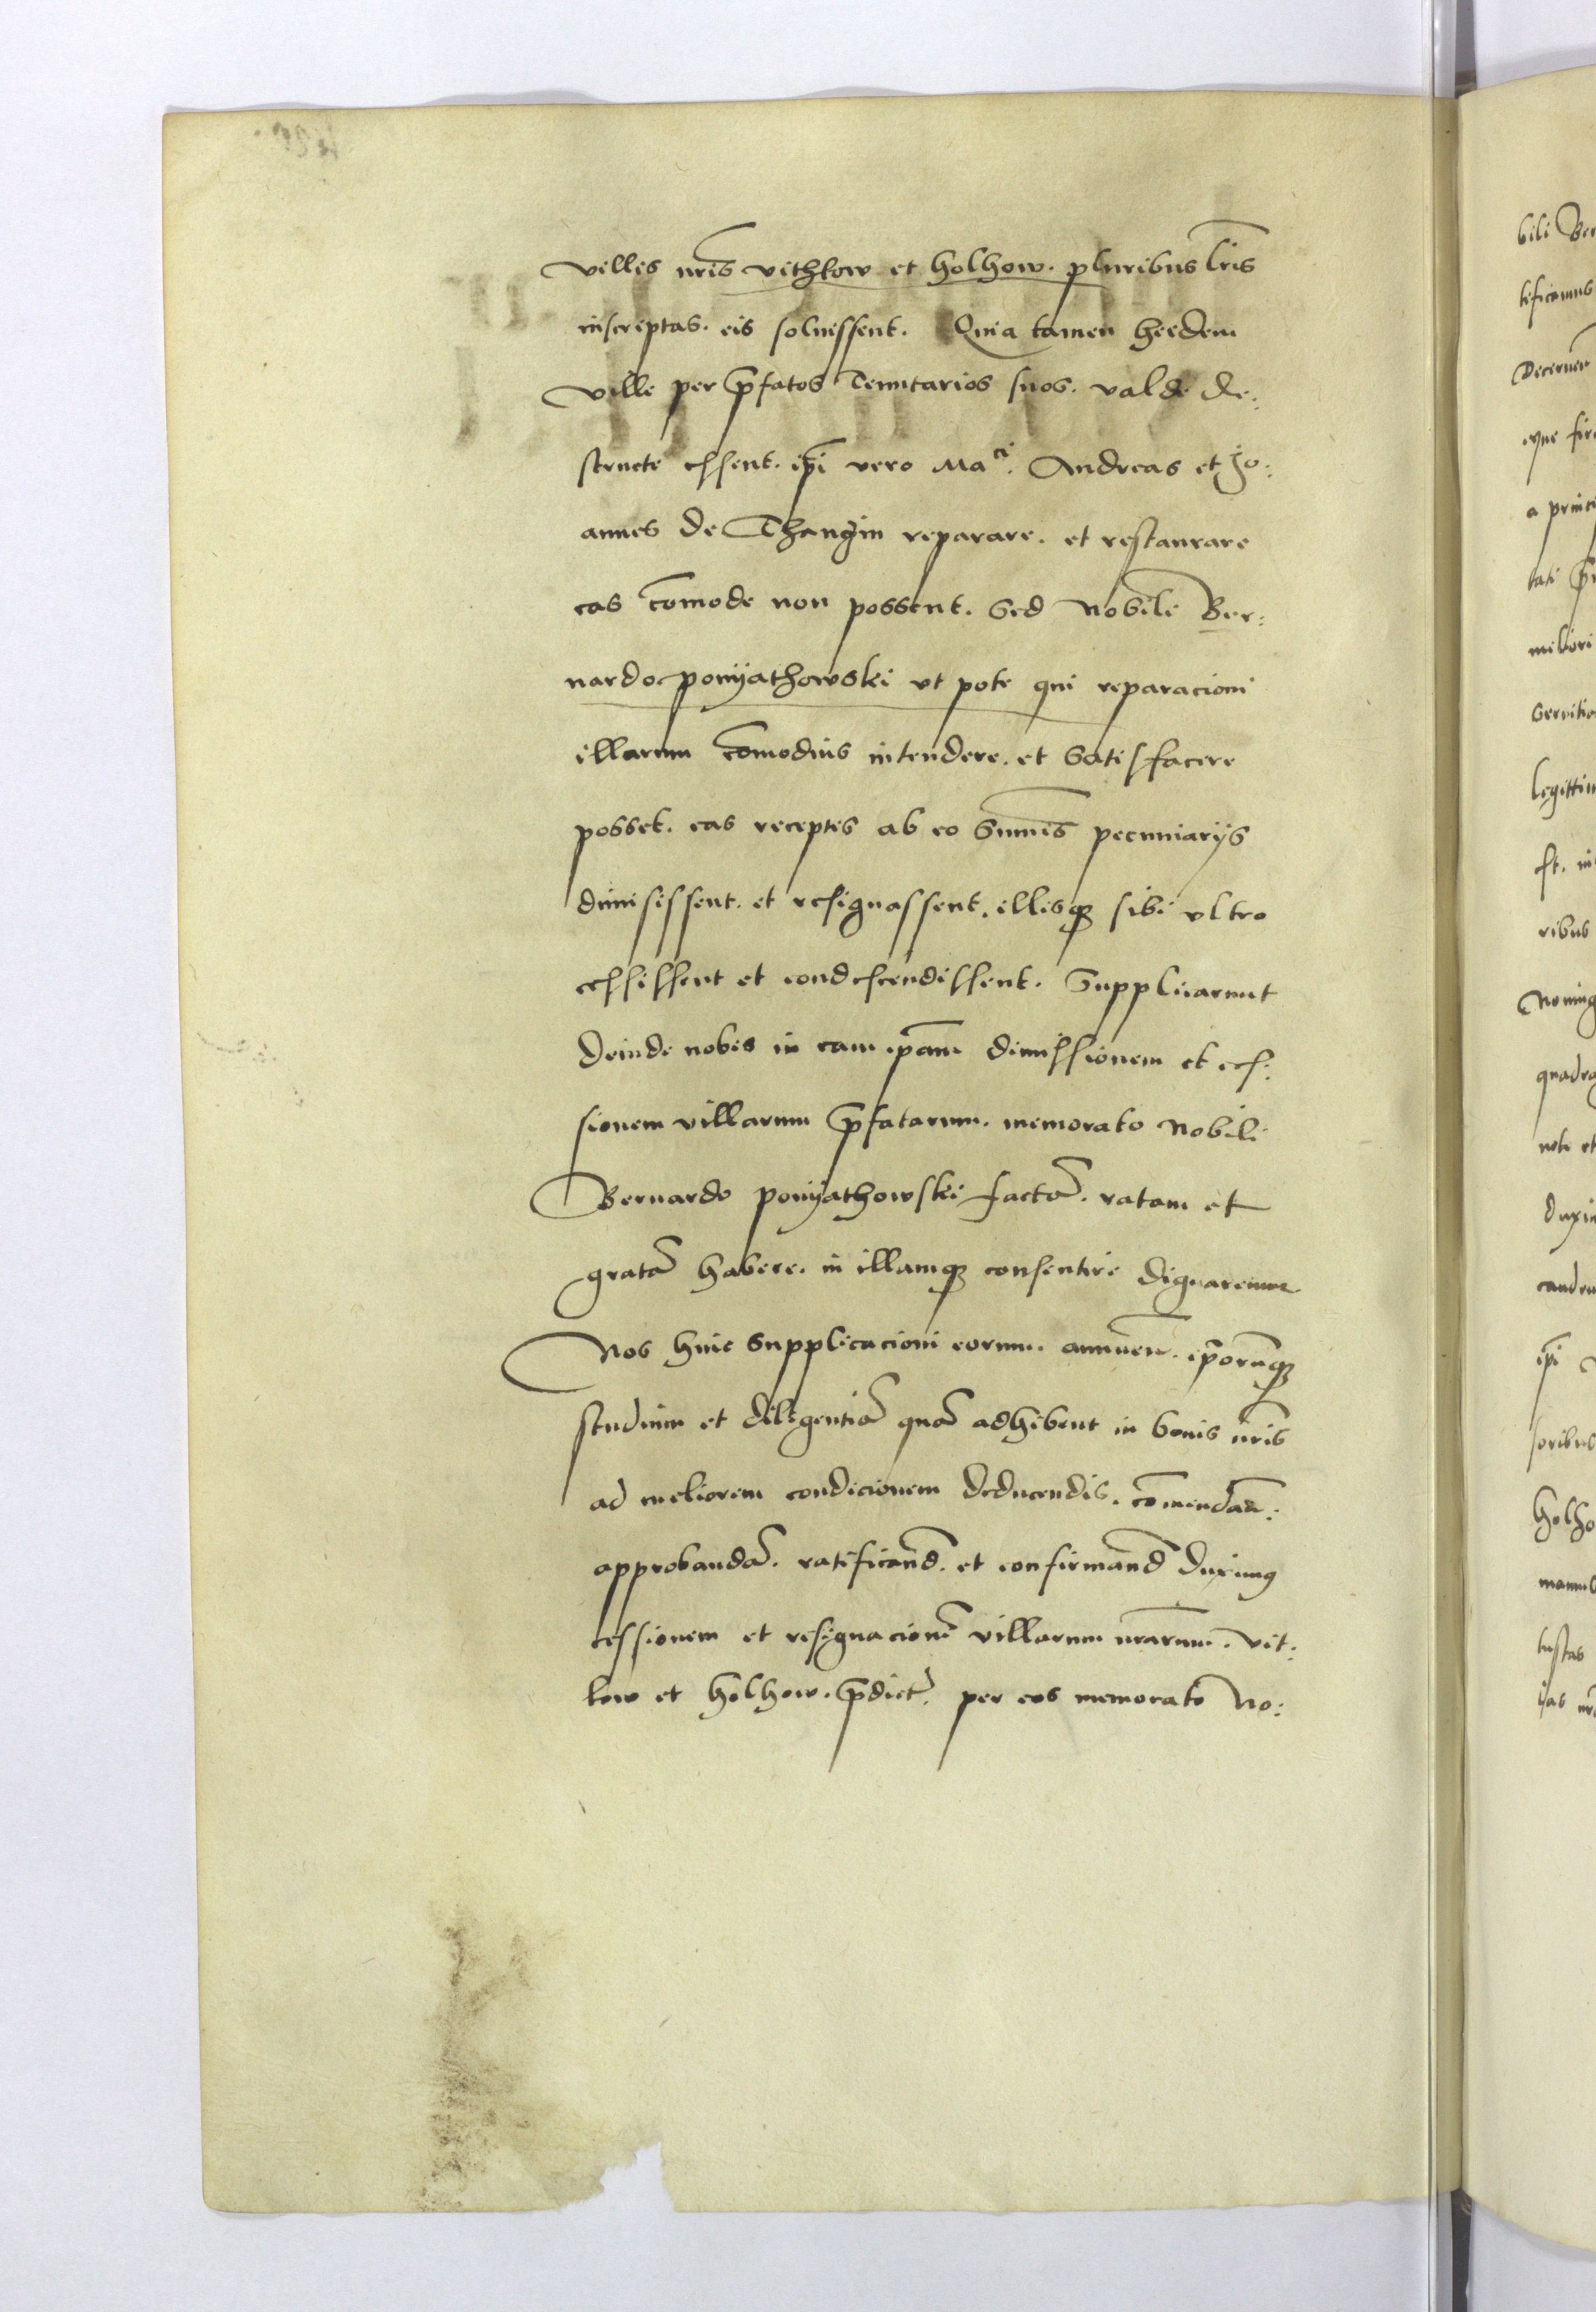 villis nr̄is vithkow et holhow. pluribus lr̄is
inscriptas. eis soluissent. Quia tamen heedem
ville per p̄fatos Tenutarios suos. valde de:
structe essent. ip̄i vero Ma^ci. Andreas et Jo:
annes de Thanczin reparare. et restaurare
eas com̄ode non possent. Sed Nobili Ber:
nardo ponyathowski vt pote qui reparacioni
illarum com̄odius intendere. et satisfacere
posset. eas receptis ab eo sum̄is pecuniarijs
dimisissent. et resignassent. illisqꝫ sibi vltro
cessissent et condescendissent. Supplicarunt
deinde nobis in eam ip̄am dimissionem et ces:
sionem villarum p̄fatarum. memorato Nobili
Bernardo ponyathowski factā. ratam et
gratā habere. in illamqꝫ consentire dignaremur
Nos huic supplicacioni eorum. annuen̄. ip̄orūqꝫ
studium et diligentiā quā adhibent in bonis nr̄is
ad meliorem condicionem deducendis. com̄endan̄:
approbandā. ratificand̄. et confirmand̄ duximꝰ
cessionem et resignacionē villarum nr̄arum. vit:
kow et holhow. p̄dict̄. per eos memorato No:
bili Ber
tificamus
Decernen
a princi
meliori
Servitio
legittim
ribus
quadra
ip̄i
soribus
holho